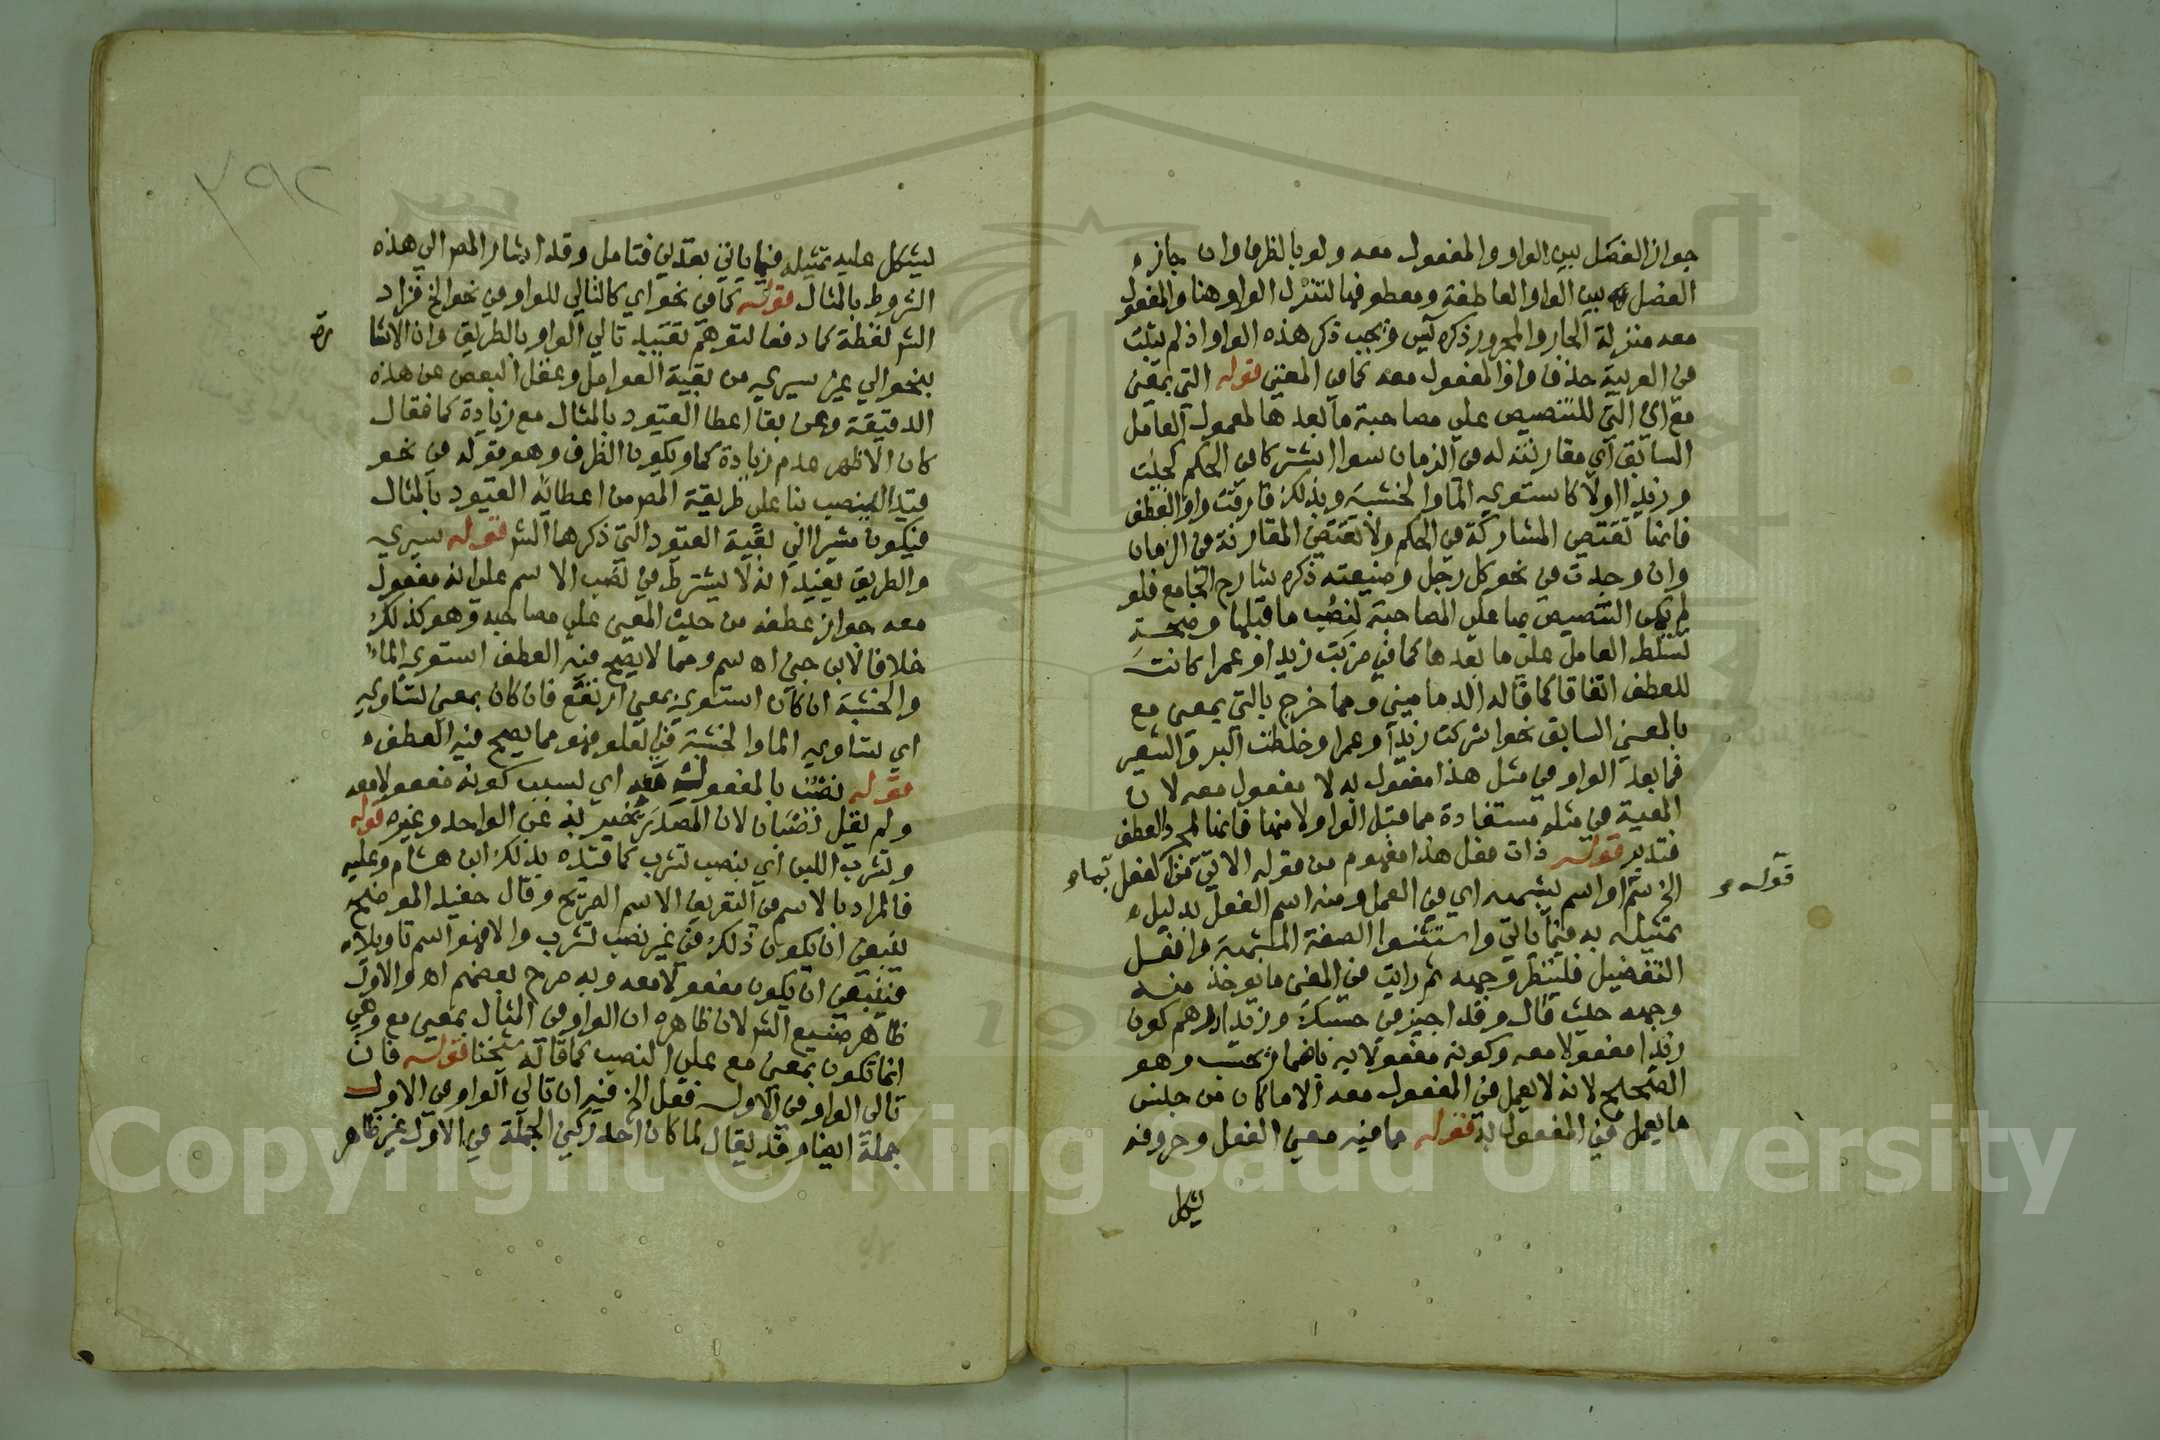 جواز الفصل بين الواو والمفعول معه ولو بالظرف وان جاز
الفصل بين الواو العاطفة ومعطوفها لتنزل الواو هنا والمفعول
معه منزلة الجار والمجرور ذكره يس ويجب ذكر هذه الواو اذ لم يثبت
في العربية حذف واو المفعول معه كما في المغني قوله التي بمعني
مع اي التي للتنصيص علي مصاحبة ما بعدها لمعمول العامل
السابق اي مقارنته له في الزمان سوا اشتركا في الحكم كجئت
وزيدا اولا كاستوي الما والخشبة وبذلك فارقت واو العطف
فانها تقتضي المشاركة في الحكم ولا تقتضي المقارنة في الزمان
وان وجدت في نحو كل رجل وضيعته ذكره شارح الجامع فلو
لم يكن التنصيص بها علي المصاحبة لنصب ما قبلها وصحة
تسلط العامل علي ما بعدها كما في ضربت زيدا وعمرا كانت
للعطف اتفاقا كما قاله الدماميني ومما خرج بالتي بمعني مع
بالمعني السابق نحو اشركت زيدا وعمرا وخلطت البر والشعير
فما بعد الواو في مثل هذا مفعول به لا مفعول معه لان
المعية في مثله مستفادة مما قبل الواو لا منها فانها لمجرد العطف
فتدبر قوله ذات فعل هذا مفهوم من قوله الاتي
قوله
الخ ثم او اسم يشبهه اي في العمل ومنه اسم الفعل بدليل
تمثيله به فيما ياتي واستثنوا الصفة المشبهة وافعل
التفضيل فلينظر وجهه ثم رايت في المغني ما يوخذ منه
وجهه حيث قال وقد اجيز في حسبك وزيدا درهم كون
زيدا مفعولا معه وكونه مفعولا به باضمار يحسب وهو
الصحيح لانه لا يعمل في المفعول معه الا ما كان من جنس
ما يعمل في المفعول به قوله ما فيه معني الفعل وحروفه
يشكل
٣٩٢
ليشكل عليه تمثيله فيما ياتي بقدني فتامل وقد اشار المص الي هذه
الشروط بالمثال قوله كما في نحو اي كالتالي للواو في نحو الخ فزاد
الش لفظة كما دفعا لتوهم تقييد تالي الواو بالطريق وان الاشا
رة
بنحو الي غير سيري من بقية العوامل وغفل البعض عن هذه
الدقيقة وعن بقا اعطا القيود بالمثال مع زيادة كما فقال
كان الاظهر عدم زيادة كما ويكون الظرف وهو قوله في نحو
قيد ينصب بنا علي طريقة المص من اعطائه القيود بالمثال
فيكون مشيرا الي بقية القيود التي ذكرها الش قوله سيري
والطريق يفيد انه لا يشترط في نصب الاسم علي انه مفعول
معه جواز عطفه من حيث المعني علي مصاحبه وهو كذلك
خلافا لابن جني اه سم ومما لا يصح فيه العطف استوي الما
والخشبة ان كان استوي بمعني ارتفع فان كان بمعني تساوي
اي تساوي الما والخشبة في العلو فهو مما يصح فيه العطف
قوله نصب بالمفعول معه اي بسبب كونه مفعولا معه
ولم يقل نصبان لان المصدر يخبر به عن الواحد وغيره قوله
وتشرب اللبن اي بنصب تشرب كما قيده بذلك ابن هشام وعليه
فالمراد بالاسم في التعريف الاسم الصريح وقال حفيد الموضح
ينبغي ان يكون ذلك في غير نصب تشرب والا فهو اسم تاويلا
فينبغي ان يكون مفعولا معه وبه صرح بعضهم اه والاول
ظاهر صنيع الش لان ظاهره ان الواو في المثال بمعني مع وهي
انما تكون بمعني مع علي النصب كما قاله شيخنا قوله فان
تالي الواو في الاول فعل الخ فيه ان تالي الواو في الاول
جملة ايضا وقد يقال لما كان احد ركني الجملة في الاول غير ظاهر
Copyright © King Saud University